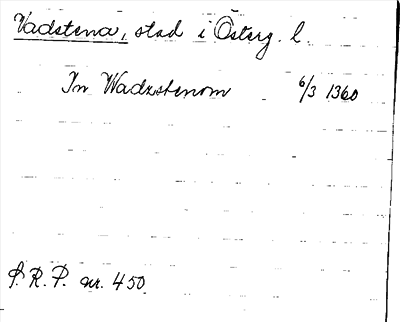 Vadstena, stad i Österg. l.
In Wadzstenom 6/3 1360
S. R. P. nr. 450